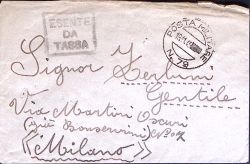 ESENTE
DA
TASSA
POSTA MILITARE
N. 79
Signor Zerbini
Gentile
Via Martiri Oscuri
(già Bonservizi) N°
"Milano"